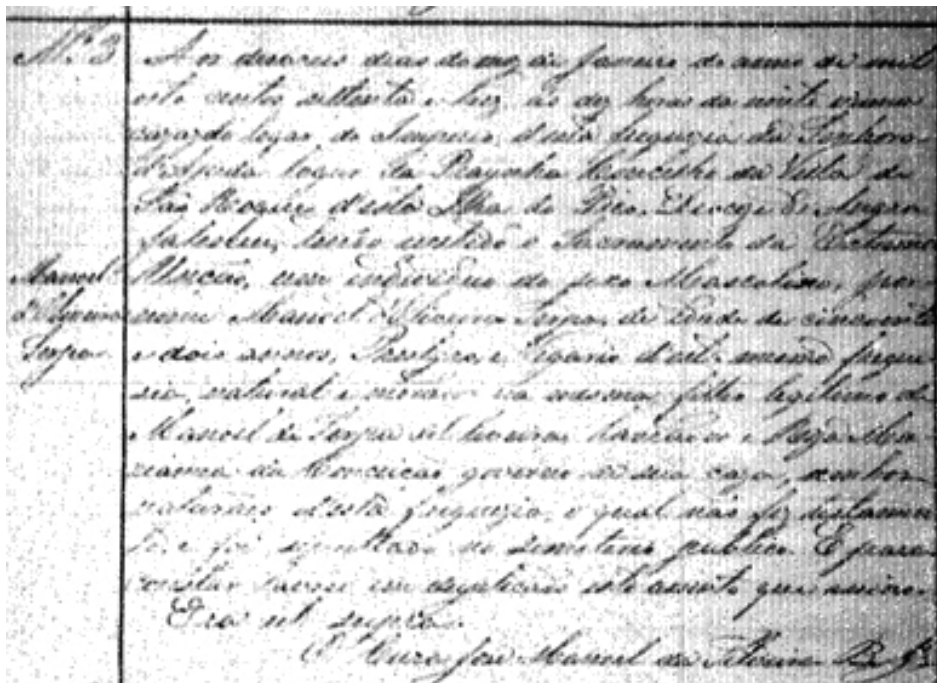 Nº 3
Manoel
d'Oliveira
Serpa
Aos dias do mez de Janeiro do anno de mil
oito centos settenta e trez, ás dez horas da noite n'uma
caza do logar do d'esta freguezia da Senhora
d'Ajuda logar da Praynha Concelho da Villa de
São Roque d'esta Ilha do Pico, Dioceze de Angra
falesceu, tendo recebido o Sacramento da Extrema
Uncão, um individuo do sexo Masculino, por
nome Manoel d'Oliveira Serpa, de idade de cincoenta
e dois annos, e Vigario d'esta mesma fregue
zia, natural e morador na mesma, filho legitimo de
Manoel de Serpa e Ma
rianna da Conceicão governo de sua caza,
naturaes d'esta freguezia, o qual não fez testamen
to, e foi sepultado no simeterio publico. E para
constar lavrei em duplicado este assento que assino.
Era ut supra.
O Cura José Manoel da Silveira